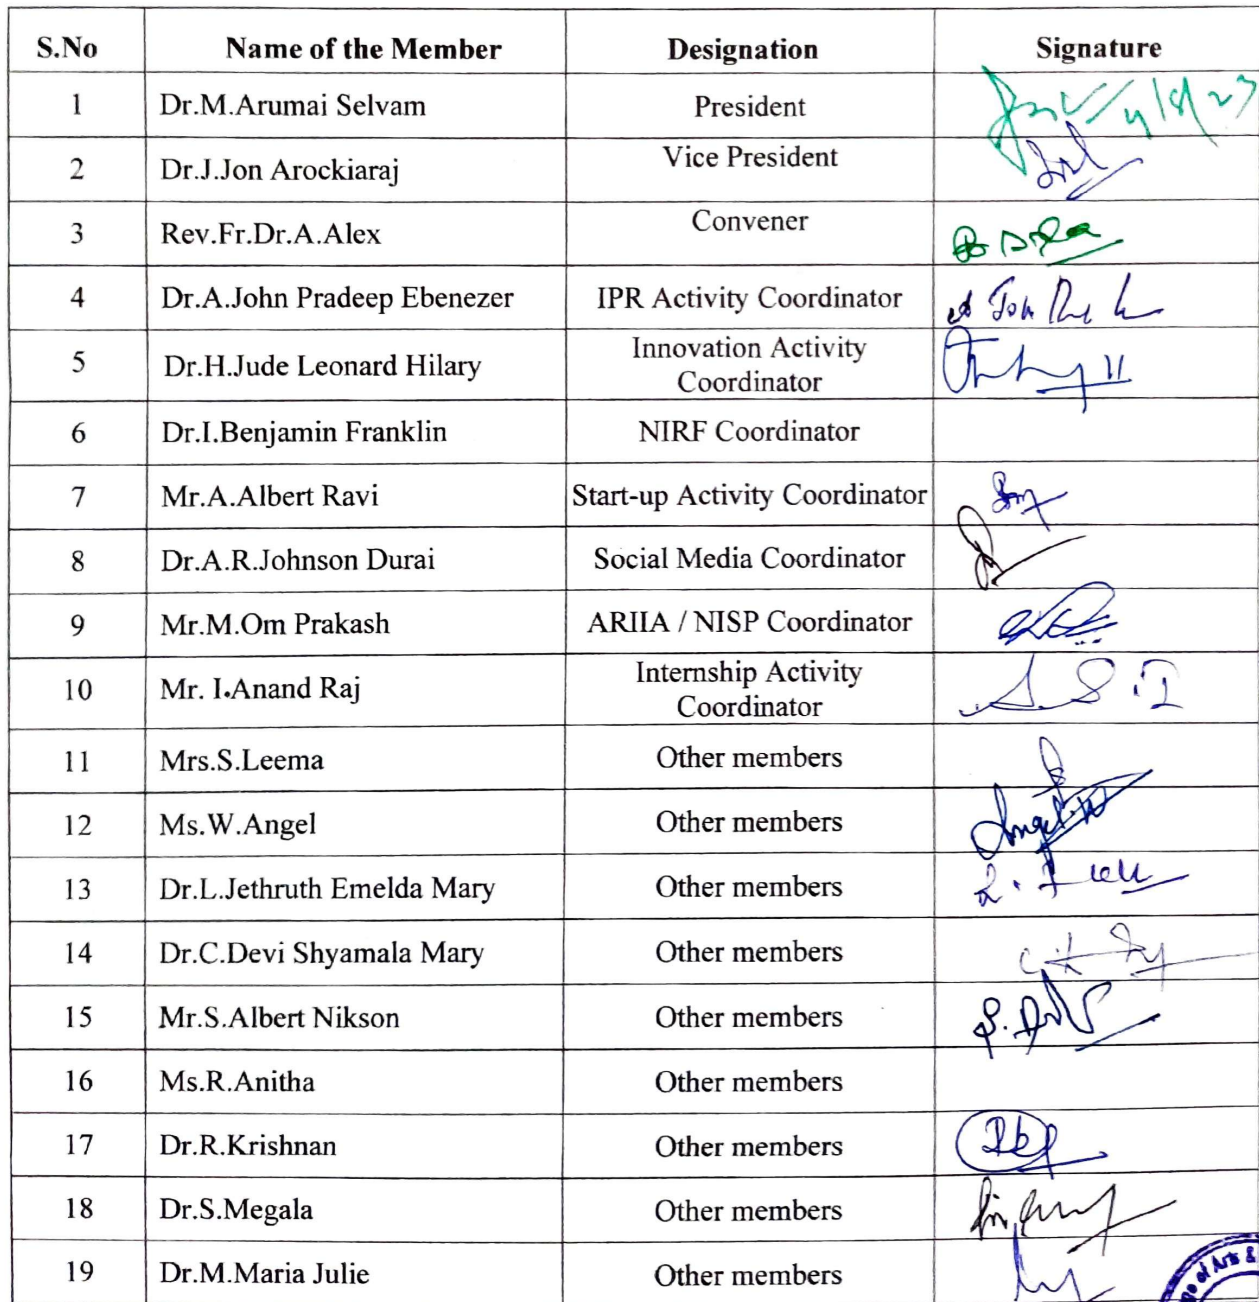 S.No Name of the Member Designation Signature
1 Dr.M.Arumai Selvam President
4/8/23
2 Dr.J.Jon Arockiaraj Vice President
3 Rev.Fr.Dr.A.Alex Convener
4 Dr.A.John Pradeep Ebenezer IPR Activity Coordinator
5 Dr.H.Jude Leonard Hilary Innovation Activity
Coordinator
6 Dr.I.Benjamin Franklin NIRF Coordinator
7 Mr.A.Albert Ravi Start-up Activity Coordinator
8 Dr.A.R.Johnson Durai Social Media Coordinator
9 Mr.M.Om Prakash ARIIA / NISP Coordinator
10 Mr. I.Anand Raj Internship Activity
Coordinator
11 Mrs.S.Leema Other members
12 Ms.W.Angel Other members
13 Dr.L.Jethruth Emelda Mary Other members
14 Dr.C.Devi Shyamala Mary Other members
15 Mr.S.Albert Nikson Other members
16 Ms.R.Anitha Other members
17 Dr.R.Krishnan Other members
18 Dr.S.Megala Other members
19 Dr.M.Maria Julie Other members
of Arts &